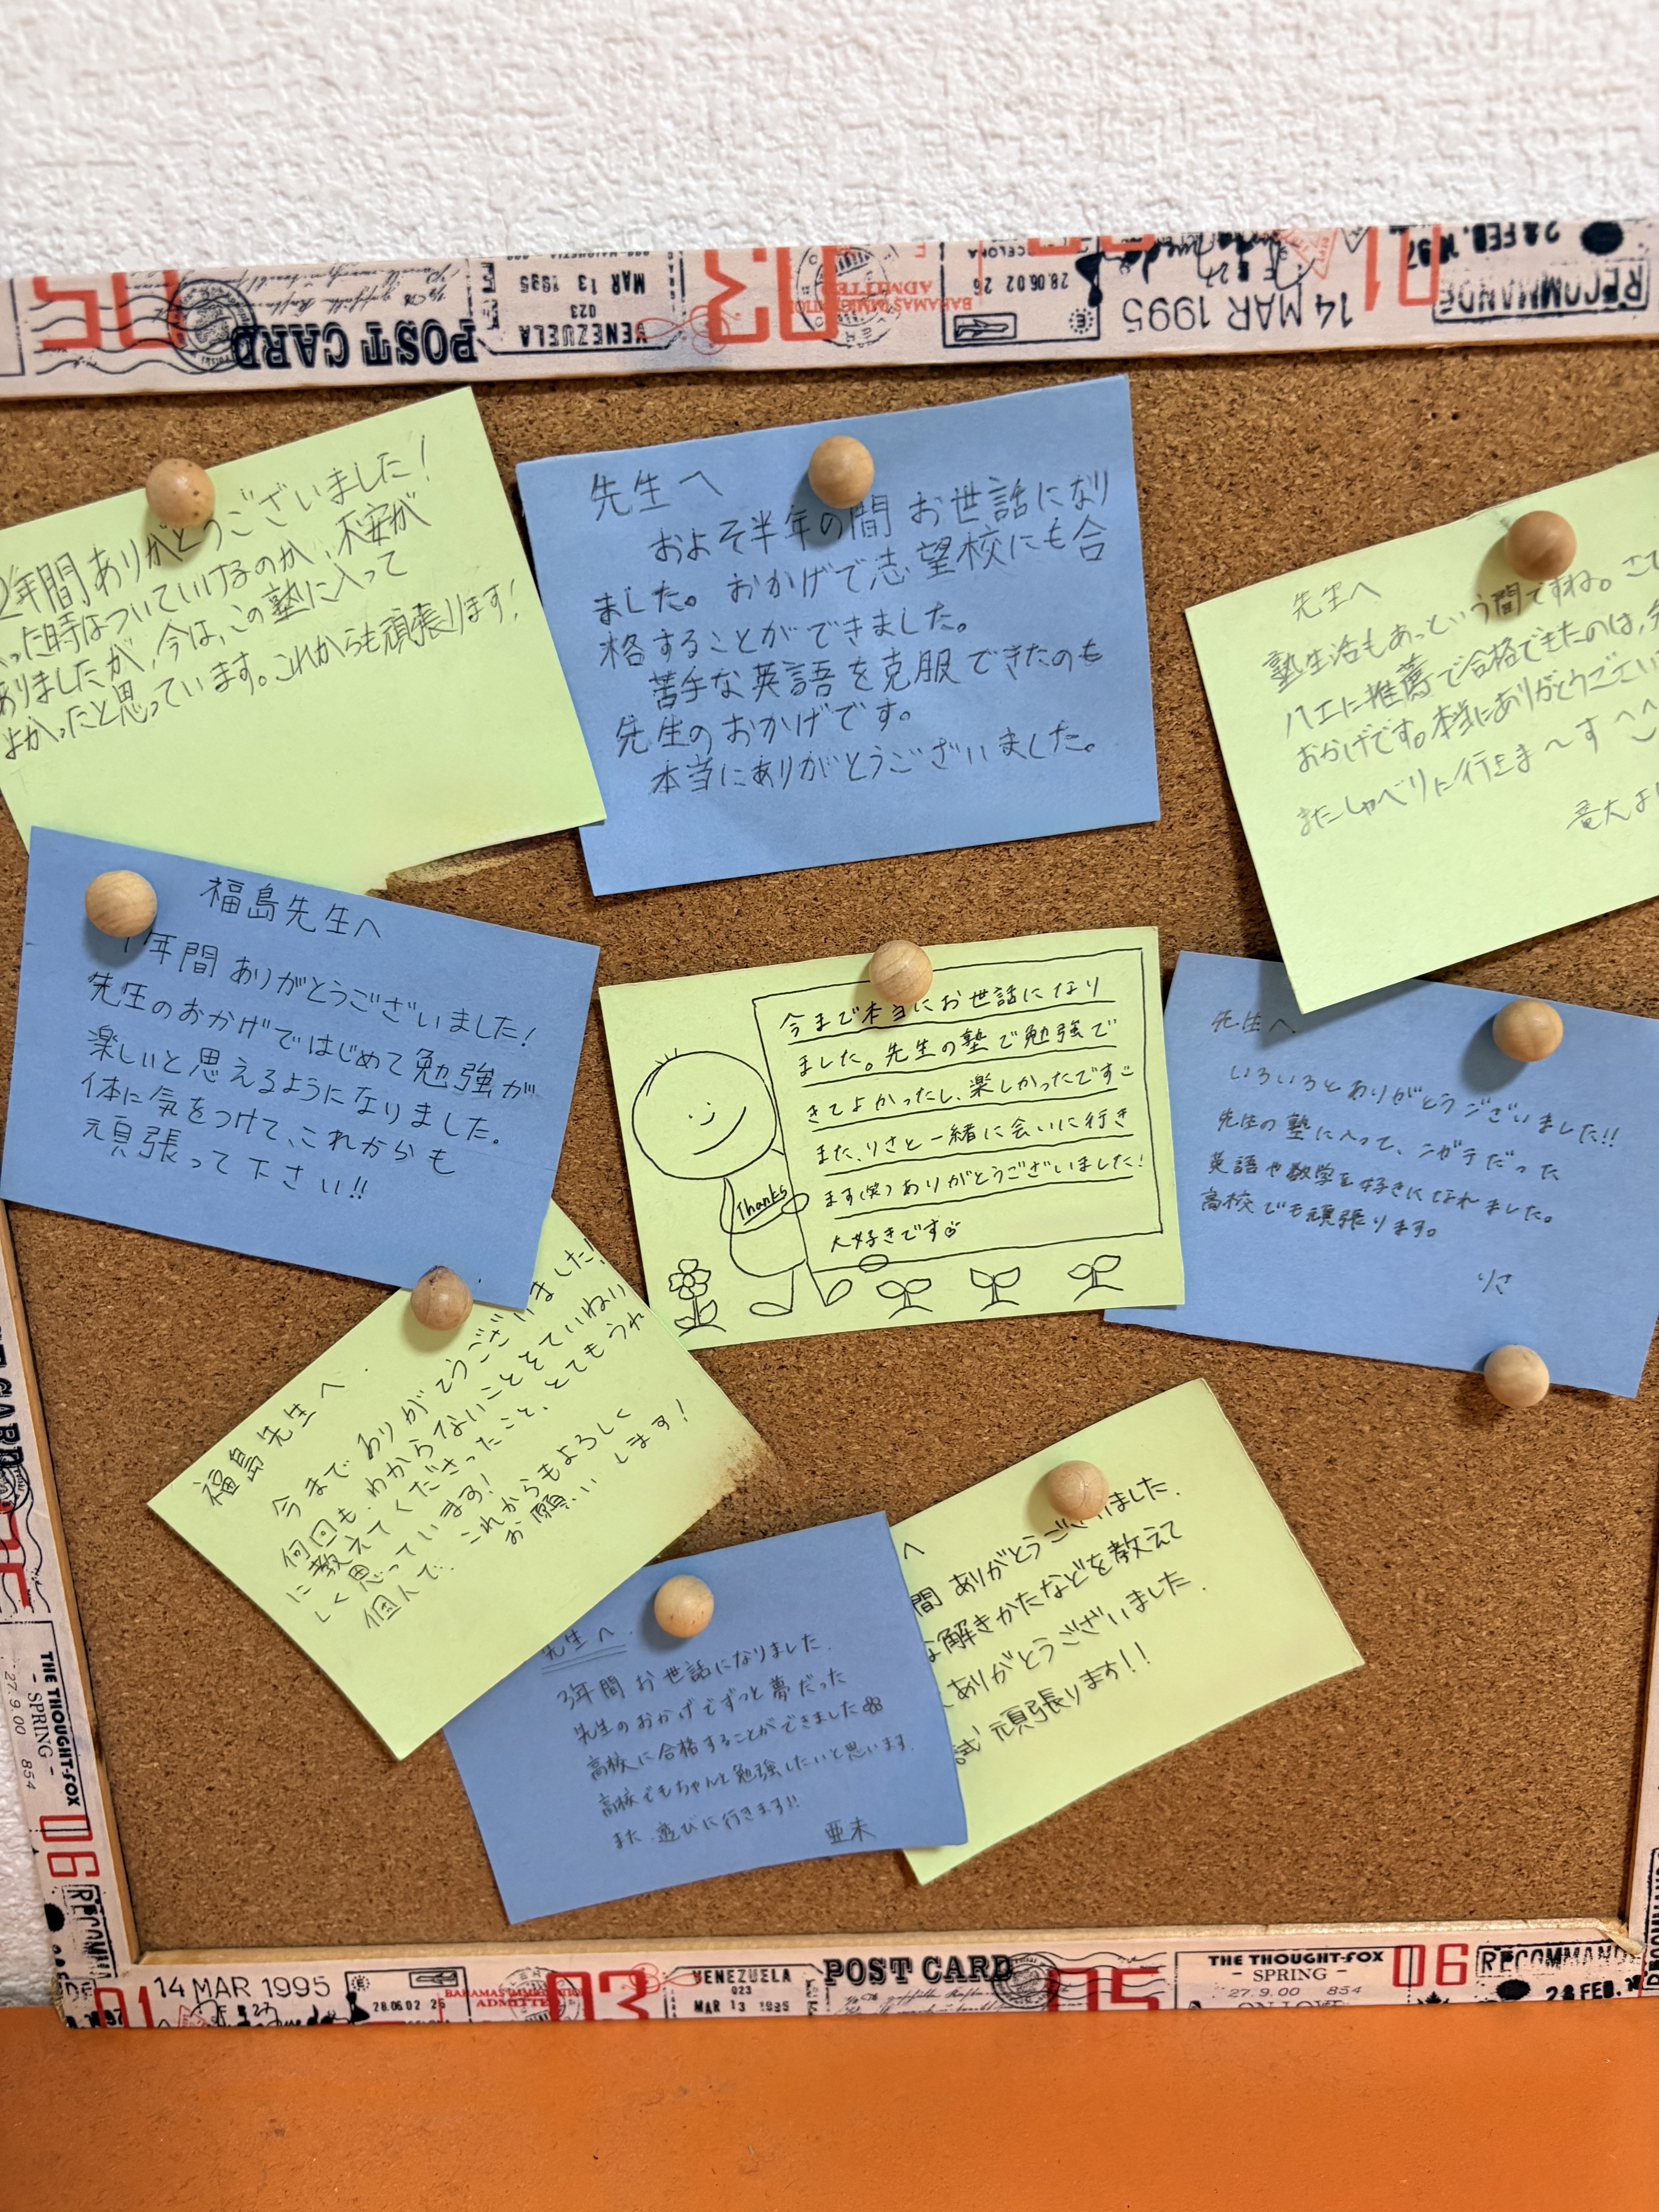 POST CARD
VENEZUELA
023
MAR 13 1995
03
BAHAMAS IMMIGRATION
ADMITTE
28.06.02 26
14 MAR 1995
01
RECOMMANDÉ
28 FEB.
2年間ありがとうございました!
った時はついていけるのか、不安が
ありましたが、今は、この塾に入って
よかったと思っています。これからも頑張ります!
先生へ
およそ半年の間お世話になり
ました。おかげで志望校にも合
格することができました。
苦手な英語を克服できたのも
先生のおかげです。
本当にありがとうございました。
先生へ
塾生活もあっという間ですね。
八工に推薦で合格できたのは、
おかげです。本当にありがとうござい
またしゃべりに行きま〜す^^
竜大よ
福島先生へ
年間ありがとうございました!
先生のおかげではじめて勉強が
楽しいと思えるようになりました。
体に気をつけて、これからも
頑張って下さい!!
今まで本当にお世話になり
ました。先生の塾で勉強で
きてよかったし、楽しかったです
また、りさと一緒に会いに行き
ます(笑)ありがとうございました!
大好きです
Thanks
先生へ
いろいろとありがとうございました!!
先生の塾に入って、ニガテだった
英語や数学を好きになれました。
高校でも頑張ります。
りさ
福島先生へ
今までありがとうございました!
何回も、わからないことをていねい
に教えてくださったこと、とてもうれ
しく思っています!
これからもよろしく
お願いします!
先生へ
3年間お世話になりました。
先生のおかげでずっと夢だった
高校に合格することができました
高校でもちゃんと勉強したいと思います。
また、遊びに行きます!!
亜未
へ
間ありがとうございました.
な解きかたなどを教えて
ありがとうございました.
試頑張ります!!
THE THOUGHT-FOX
- SPRING -
27.9.00 854
06
14 MAR 1995
01
28.06.02 26
03
VENEZUELA
023
MAR 13 1995
POST CARD
05
THE THOUGHT-FOX
- SPRING -
27.9.00 854
06
RECOMMANDÉ
28 FEB.